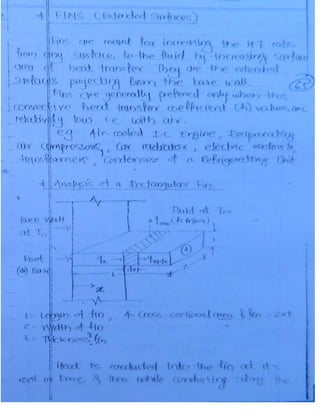 * FINS (Extended Surfaces)
Fins are meant for increasing the HT rate
from any surface to the fluid by increasing surface
area of heat transfer They are the extended
surfaces projecting from the base wall.
65
Fins are generally preferred only when the
convective heat transfer coefficient (h) values are
relatively low i.e. with air.
eg. Air cooled I.C Engine, Reciprocating
air compressors, Car radiators, electric motors &
transformers, Condenser of a Refrigerating Unit
* Analysis of a Rectangular Fin
Fluid at T∞
Base Wall
at To
Root
(or) Base
qx
dx
x
A
l = Length of fin, A = Cross-sectional area of fin = z×t
z = Width of fin
t = Thickness of fin
Heat is conducted into the fin at its
root or base & then while conducting along the